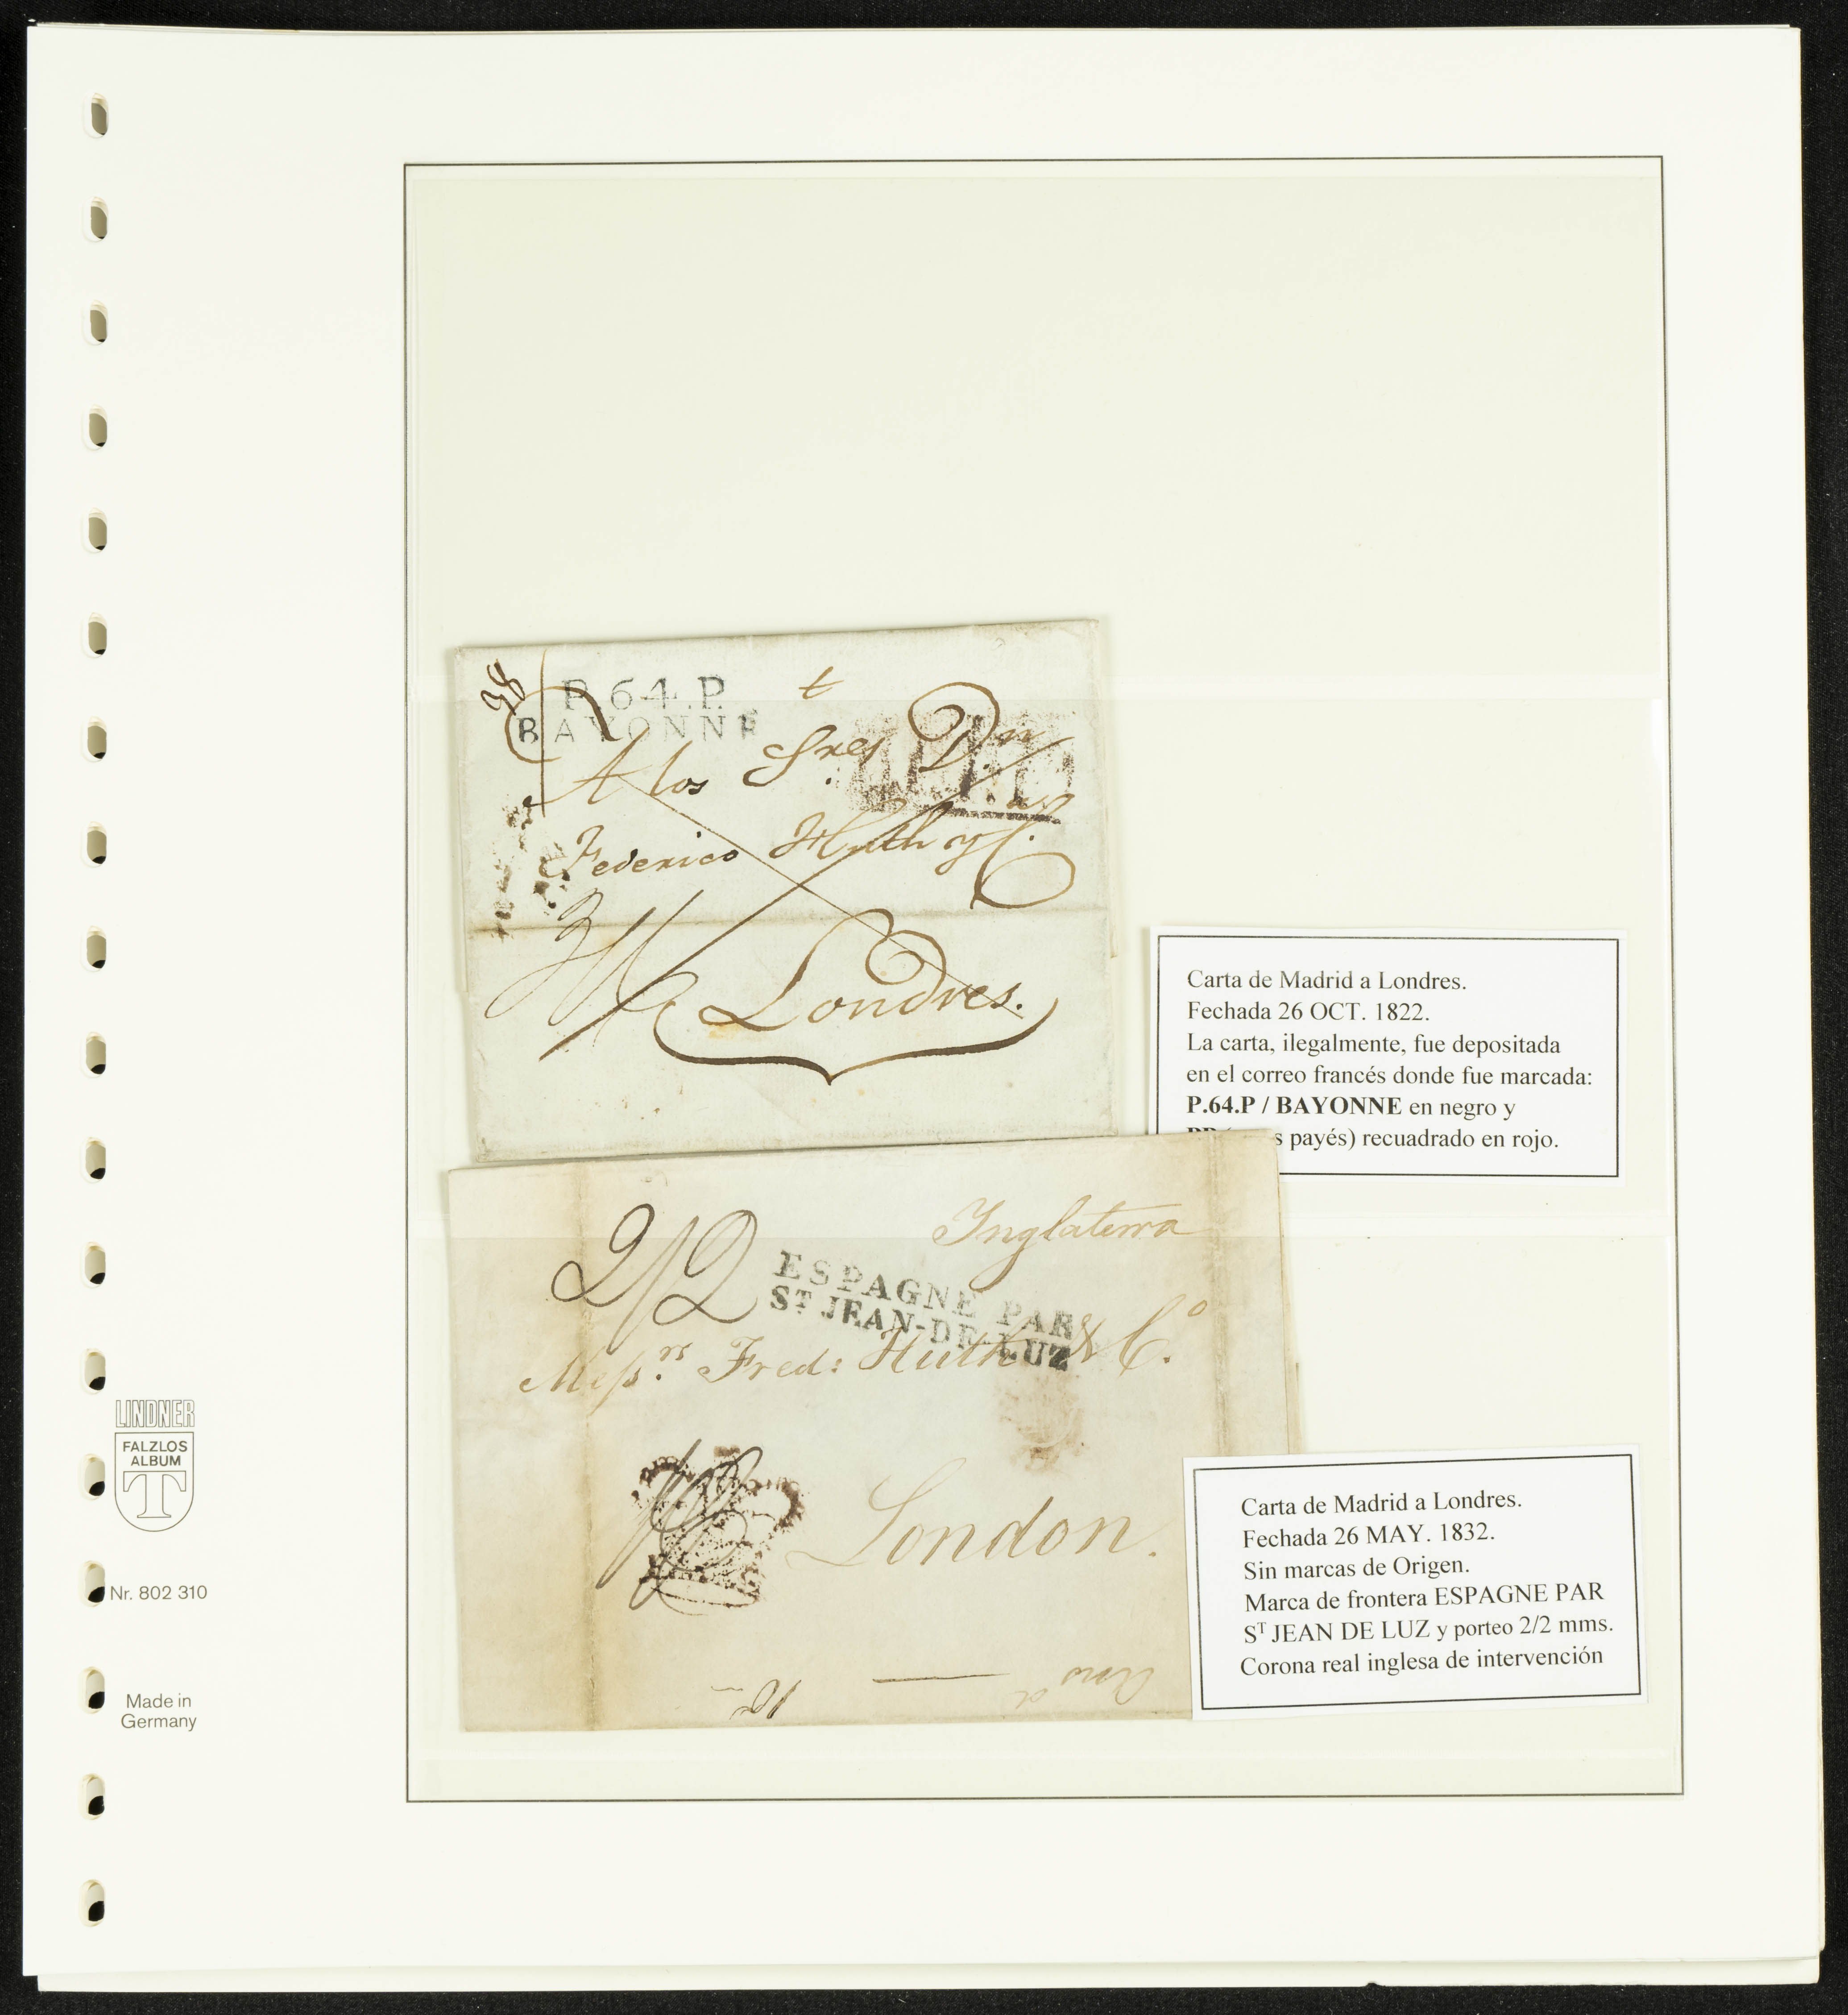 38
P.64.P.
BAYONNE
A los Sres Dn
Federico Huth y C.
Londres.
Carta de Madrid a Londres.
Fechada 26 OCT. 1822.
La carta, ilegalmente, fue depositada
en el correo francés donde fue marcada:
P.64.P / BAYONNE en negro y
payés) recuadrado en rojo.
2/2
Inglaterra
ESPAGNE PAR
ST JEAN-DE-LUZ
Messrs. Fred: Huth & Co.
London.
Carta de Madrid a Londres.
Fechada 26 MAY. 1832.
Sin marcas de Origen.
Marca de frontera ESPAGNE PAR
ST JEAN DE LUZ y porteo 2/2 mms.
Corona real inglesa de intervención
LINDNER
FALZLOS
ALBUM
T
Nr. 802 310
Made in
Germany